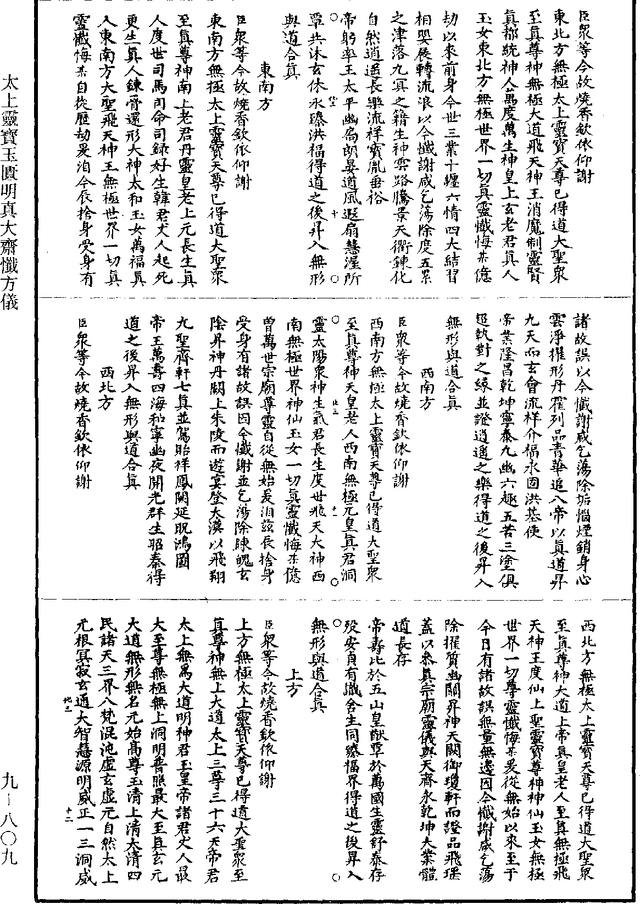 臣眾等今故燒香欽依仰謝
東北方無極太上靈寶天尊已得道大聖眾
至真尊神無極大道飛天神王消魔制靈賢
真都統神人萬度萬生神皇上玄老君真人
玉女東北方無極世界一切真靈懺悔某億
劫以來前身今世三業十纏六情四大結習
相嬰展轉流浪以今懺謝咸乞蕩除度五累
之津落九冥之籍生神雲路騰景天衢鍊化
自然逍遙長樂流祥寶胤垂裕
帝躬率土太平幽局朗晏道風遐扇慧渥所
覃共沐玄休永臻洪福得道之後昇入無形
與道合真
東南方
臣眾等今故燒香欽依仰謝
東南方無極太上靈寶天尊已得道大聖眾
至真尊神南上老君丹靈皇老上元長生真
人度世司馬司命司錄好生韓君丈人起死
更生真人鍊骨還形大神太和玉女萬福真
人東南方大聖飛天神王無極世界一切真
靈懺悔某自從歷劫爰洎今辰捨身受身有
諸故誤以今懺謝咸乞蕩除垢惱煙銷身心
雲淨擢形丹霍列品青華追八帝以真道昇
九天而玄會流祥介福永固洪基使
帝業隆昌乾坤寧泰九幽六趣五苦三塗俱
迢執對之緣並證逍遙之樂得道之後昇入
無形與道合真
西南方
臣眾等今故燒香欽依仰謝
西南方無極太上靈寶天尊已得道大聖眾
至真尊神天皇老人西南無極元皇真君洞
靈太陽眾神生氣君長生度世飛天大神西
南無極世界神仙玉女一切真靈懺悔某億
曾萬世宗廟尊靈自從無始爰洎茲辰捨身
受身有諸故誤因今懺謝並乞蕩除陳魄玄
陰昇神丹闕上朱陵而遊宴登太漠以飛翔
九聖齊軒七真並駕貽祥鳳闕延貺鴻圖
帝王萬壽四海和寧幽夜開光群生昭泰得
道之後昇入無形與道合真
西北方
臣眾等今故燒香欽依仰謝
西北方無極太上靈寶天尊已得道大聖眾
至真尊神大道上帝真皇老人至真無極飛
天神王度仙上聖靈寶尊神神仙玉女無極
世界一切尊靈懺悔某爰從無始以來至于
今日有諸故誤無量無邊因今懺謝咸乞蕩
除擢質幽關昇神天闕御瓊軒而證品飛瑤
蓋以參真宗廟靈儀與天齊永乾坤大業體
道長存
帝壽比於五山皇猷覃於萬國生靈舒泰存
歿安貞有識含生同霑福界得道之後昇入
無形與道合真
上方
臣眾等今故燒香欽依仰謝
上方無極太上靈寶天尊已得道大聖眾至
真尊神無上大道太上三尊三十六天帝君
太上無為大道明神君玉皇帝諸君丈人最
大至尊無極無上洞明普照最大至真玄元
大道無形無名元始高尊玉清上清太清四
民諸天三界八梵混沌虛玄虛元自然太上
元根冥寂玄通大智慧源明威正一三洞威
太上靈寶玉匱明真大齋懺方儀
九-八〇九